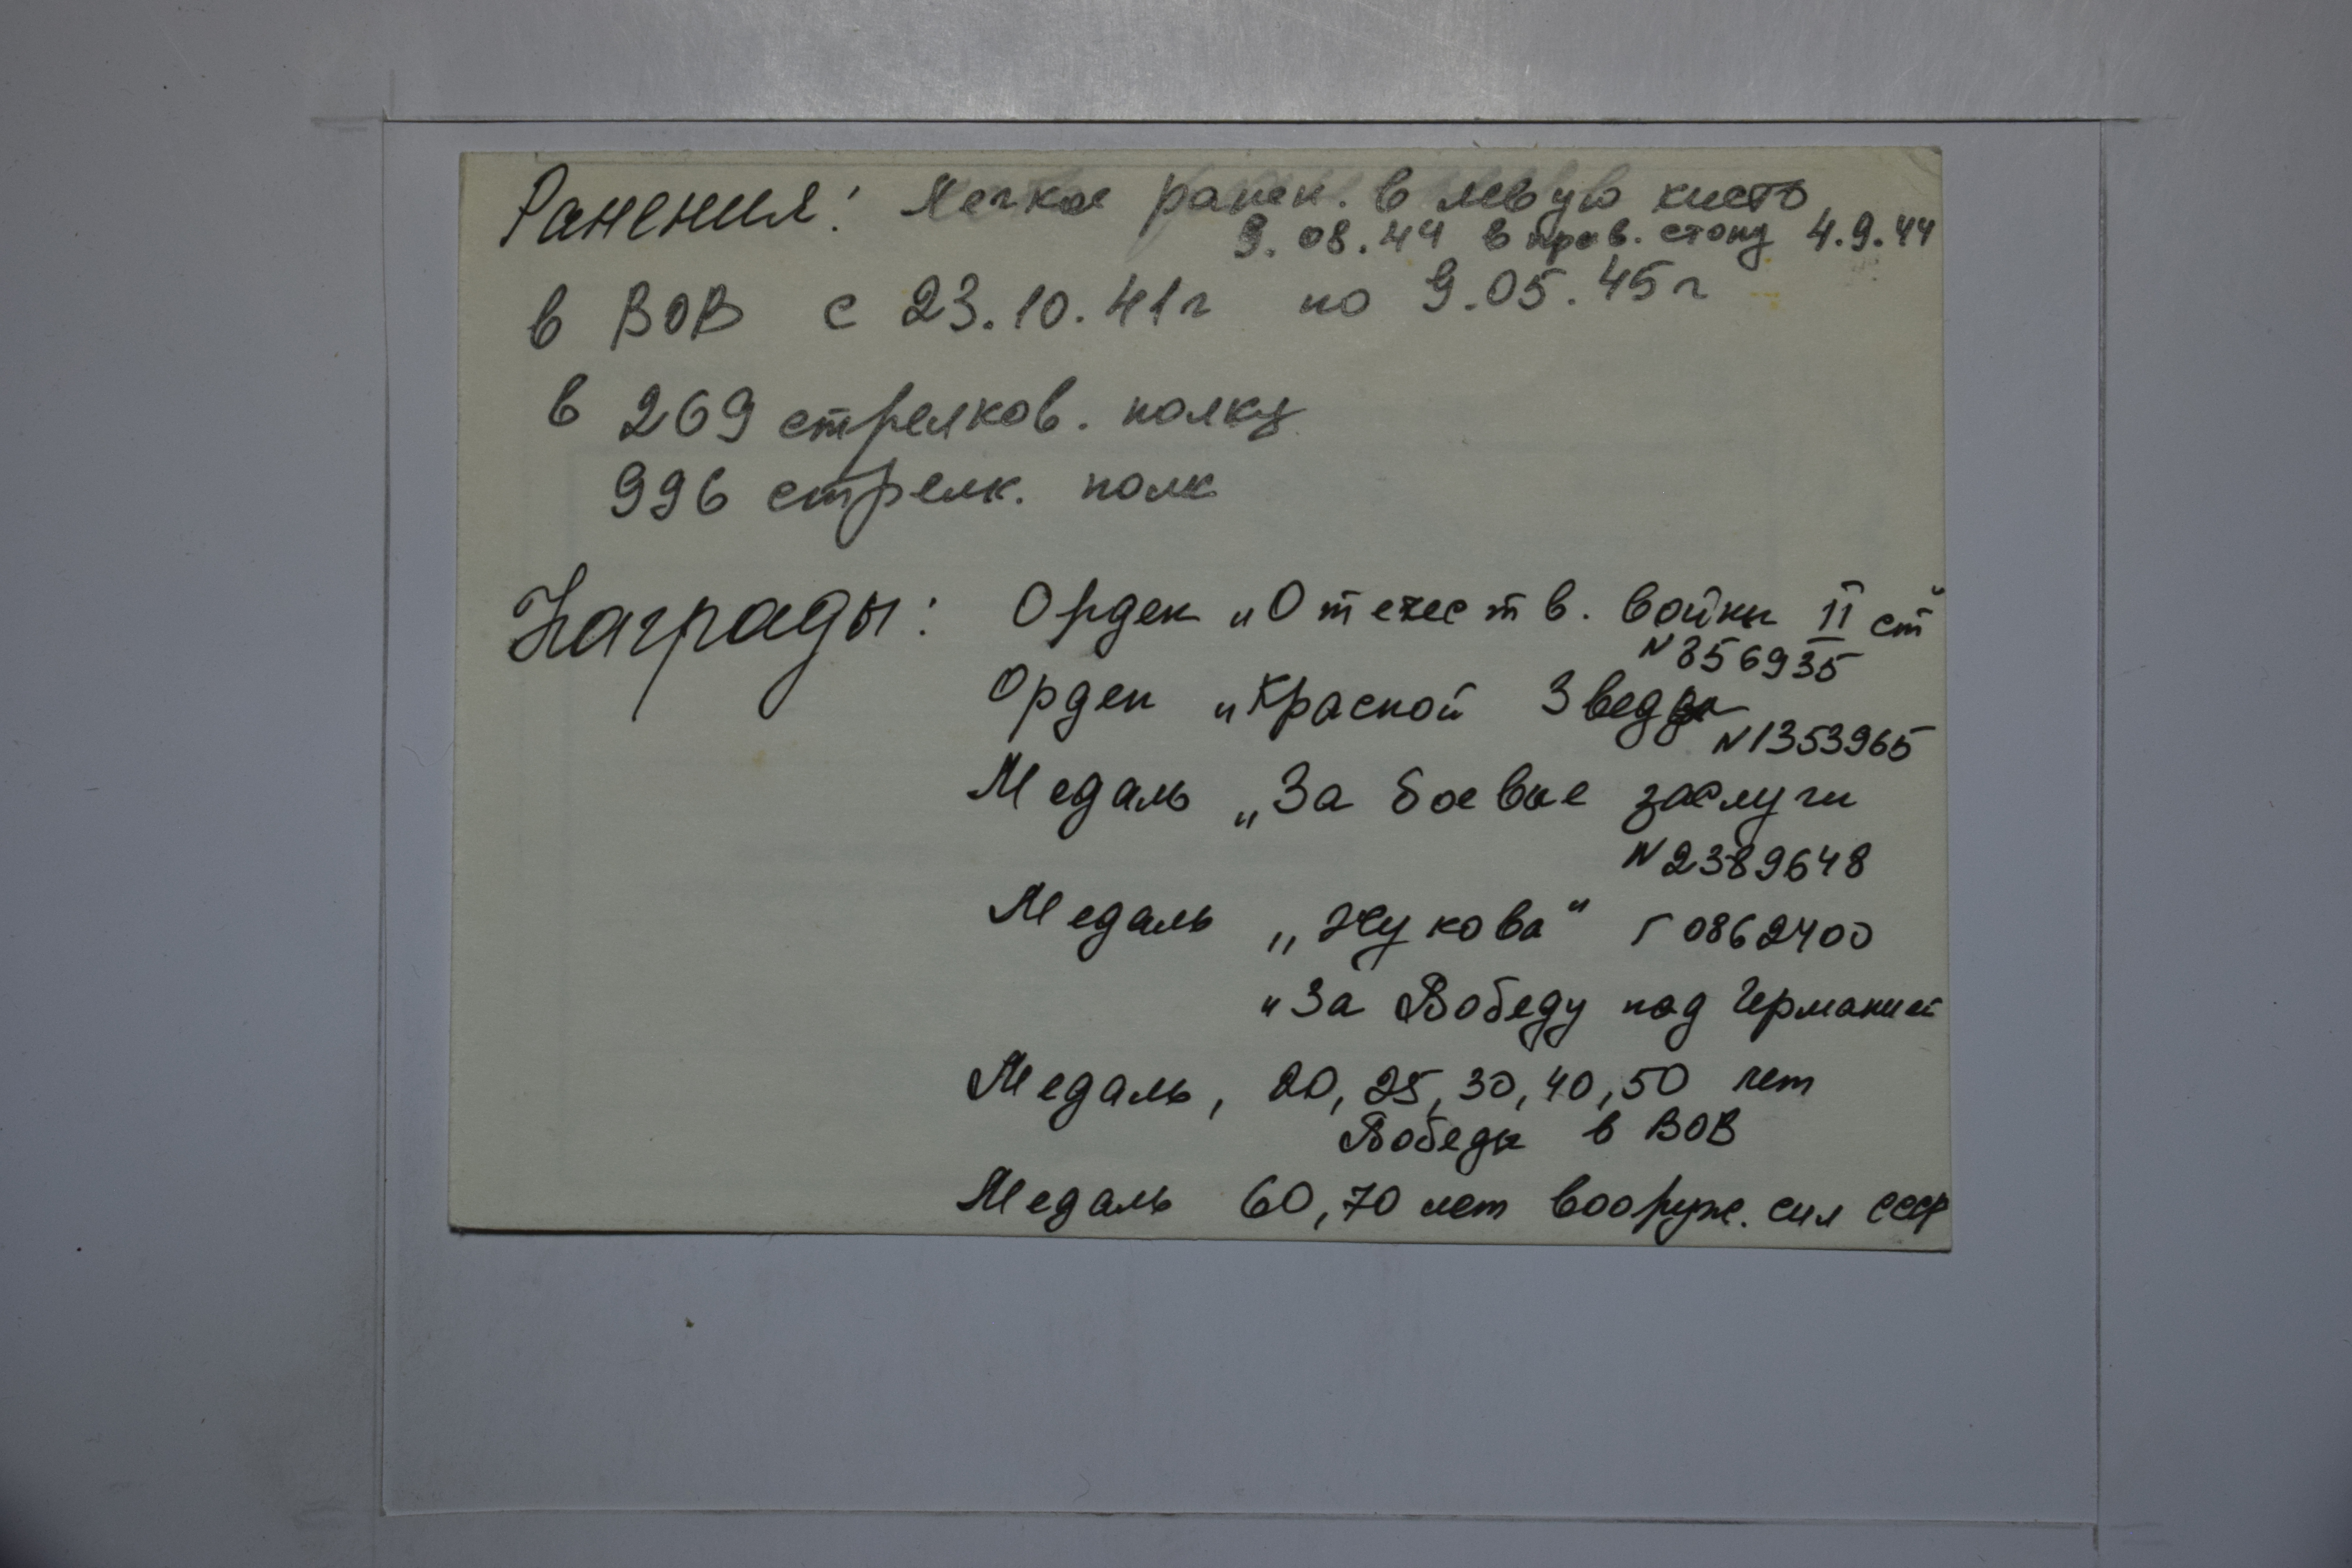 Ранения: Легкое ранен. в левую кисть
9.08.44 в прав. стопу 4.9.44
в ВОВ с 23.10.41г по 9.05.45г
в 269 стрелков. полку
996 стрелк. полк
Награды: Орден "Отечеств. войны II ст"
N 856935
Орден "Красной Звезды
N1353965
Медаль "За боевые заслуги
N2389648
Медаль "Жукова" Г 0862400
"За Победу над Германией
Медаль, 20, 25, 30, 40, 50 лет
Победы в ВОВ
Медаль 60, 70 лет вооруж. сил СССР